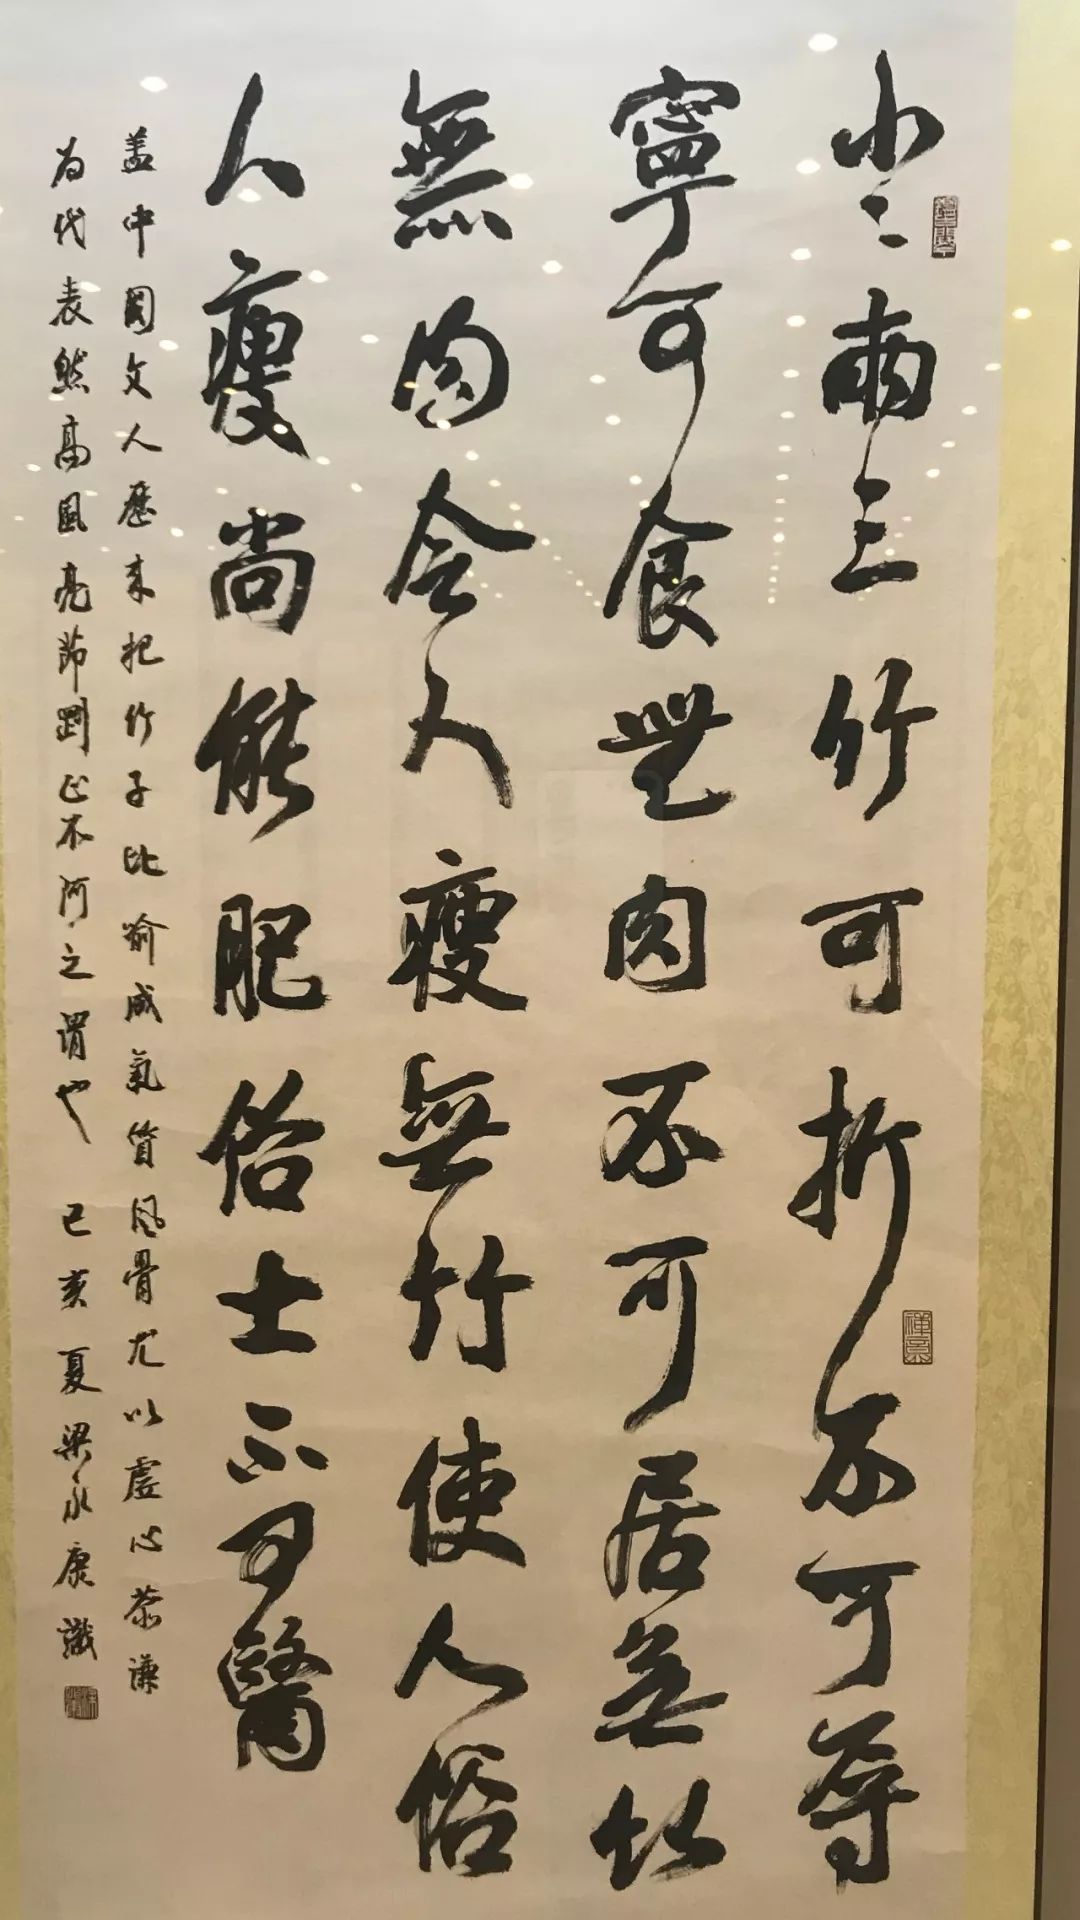 小〻兩三竹可折不可辱
寧可食無肉不可居無竹
無肉令人瘦無竹使人俗
人瘦尚能肥俗士不可醫
盖中國文人歷来把竹子比喻成氣質风骨尤以虛心恭谦
为代表然高風亮節剛正不阿之謂也 己亥夏梁永康識